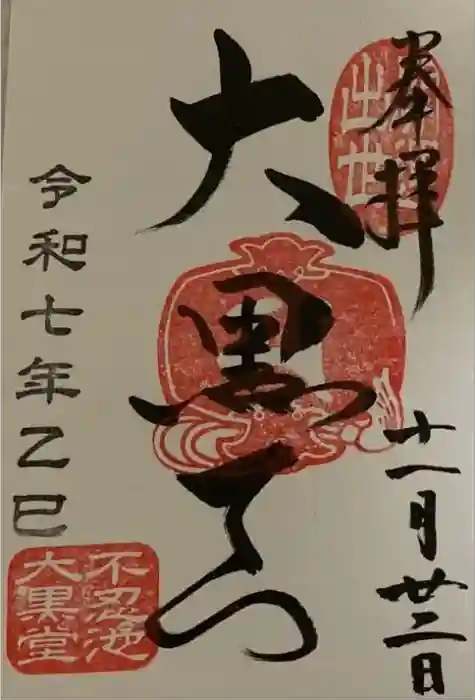 奉拝
十一月廿二日
出世
大黒天
令和七年乙巳
不忍池
大黒堂